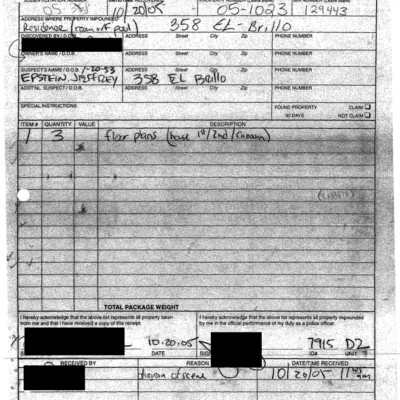 10/20/05 05-1023 129443
ADDRESS WHERE PROPERTY IMPOUNDED
Residence 358 EL-Brillo
DISCOVERED BY / D.O.B. ADDRESS Street City Zip PHONE NUMBER
OWNER'S NAME / D.O.B. ADDRESS Street City Zip PHONE NUMBER
SUSPECT'S NAME / D.O.B. 1-20-53 ADDRESS Street City Zip PHONE NUMBER
EPSTEIN, JEFFREY 358 EL Brillo
ADDT'NL SUSPECT / D.O.B. ADDRESS Street City Zip PHONE NUMBER
SPECIAL INSTRUCTIONS FOUND PROPERTY CLAIM
90 DAYS NOT CLAIM
ITEM # QUANTITY VALUE DESCRIPTION
1 3 floor plans (house 1st/2nd/
TOTAL PACKAGE WEIGHT
I hereby acknowledge that the above list represents all property taken from me and that I have received a copy of this receipt.
I hereby acknowledge that the above list represents all property impounded by me in the official performance of my duty as a police officer.
10.20.05 7915 D2
DATE SIG ID# UNIT
RECEIVED BY REASON DATE/TIME RECEIVED
10/20/05